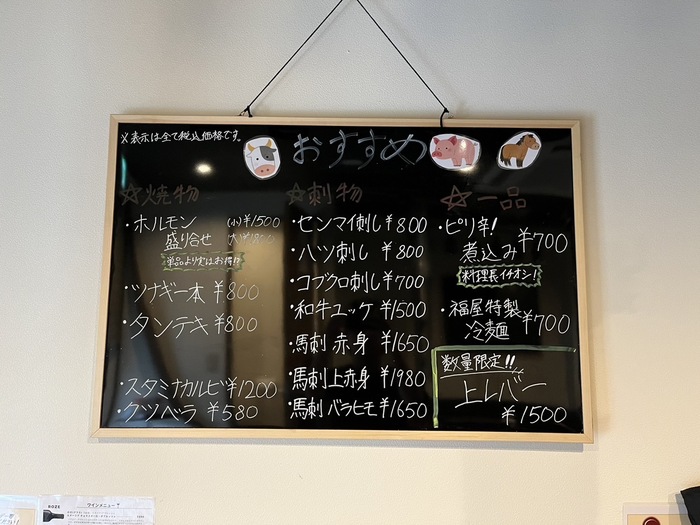 ※表示は全て税込価格です。
おすすめ
☆焼物
・ホルモン (小)¥1500
盛り合せ (大)
単品より実はお得!?
・ツナギ一本 ¥800
・タンテキ ¥800
・スタミナカルビ ¥1200
・クツベラ ¥580
☆刺物
・センマイ刺し ¥800
・ハツ刺し ¥800
・コブクロ刺し ¥700
・和牛ユッケ ¥1500
・馬刺 赤身 ¥1650
・馬刺 上赤身 ¥1980
・馬刺 バラヒモ ¥1650
☆一品
・ピリ辛!
煮込み ¥700
料理長イチオシ!
・福屋特製
冷麺 ¥700
数量限定!!
上レバー
¥1500
ROZE
ワインメニュー